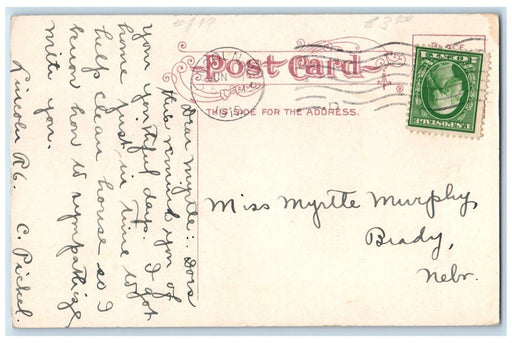 Post Card
THIS SIDE FOR THE ADDRESS.
U.S. POSTAGE
Miss Myrtle Murphy
Brady,
Nebr.
Dear Myrtle:. Does
this remind you of
your youthful days. I got
home just in time to
help clean house so I
know how to sympathize
with you.
Lincoln R6. C. Pickel.